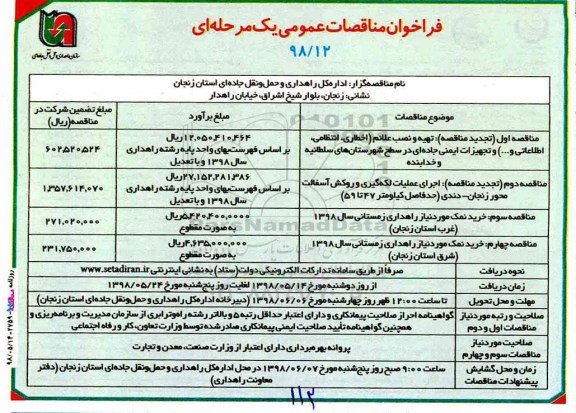 فراخوان مناقصات عمومی یک مرحله‌ای
۹۸/۱۲
سازمان راهداری و حمل و نقل جاده‌ای
نام مناقصه‌گزار: اداره کل راهداری و حمل‌ونقل جاده‌ای استان زنجان
نشانی: زنجان، بلوار شیخ اشراق، خیابان راهدار
موضوع مناقصات
مبلغ برآورد
مبلغ تضمین شرکت در
مناقصه(ریال)
مناقصه اول (تجدید مناقصه): تهیه و نصب علائم (اخطاری، انتظامی،
اطلاعاتی و...) و تجهیزات ایمنی جاده‌ای در سطح شهرستان‌های سلطانیه
و خدابنده
۱۲,۰۵۰,۴۱۰,۴۶۴ریال
بر اساس فهرست‌بهای واحد پایه رشته راهداری
سال ۱۳۹۸ و با تعدیل
۶۰۲,۵۲۰,۵۲۴
مناقصه دوم (تجدید مناقصه): اجرای عملیات لکه‌گیری و روکش آسفالت
محور زنجان- دندی (حدفاصل کیلومتر ۴۷ تا ۵۹)
۲۷,۱۵۲,۲۸۱,۳۸۶ریال
بر اساس فهرست‌بهای واحد پایه رشته راهداری
سال ۱۳۹۸ و با تعدیل
۱,۳۵۷,۶۱۴,۰۷۰
مناقصه سوم: خرید نمک موردنیاز راهداری زمستانی سال ۱۳۹۸
(غرب استان زنجان)
۵,۴۲۰,۴۰۰,۰۰۰ریال
به صورت مقطوع
۲۷۱,۰۲۰,۰۰۰
مناقصه چهارم: خرید نمک موردنیاز راهداری زمستانی سال ۱۳۹۸
(شرق استان زنجان)
۴,۶۳۵,۰۰۰,۰۰۰ریال
به صورت مقطوع
۲۳۱,۷۵۰,۰۰۰
نحوه دریافت
صرفا از طریق سامانه تدارکات الکترونیکی دولت(ستاد) به نشانی اینترنتی www.setadiran.ir
زمان دریافت
از روز دوشنبه مورخ ۱۳۹۸/۰۵/۱۴ لغایت روز پنج‌شنبه مورخ ۱۳۹۸/۰۵/۲۴
مهلت و محل تحویل
تا ساعت ۱۲:۰۰ ظهر روز چهارشنبه مورخ ۱۳۹۸/۰۶/۰۶ (دبیرخانه اداره کل راهداری و حمل‌ونقل جاده‌ای استان زنجان)
صلاحیت و رتبه موردنیاز
مناقصات اول و دوم
گواهینامه احراز صلاحیت پیمانکاری و دارای اعتبار حداقل رتبه ۵ و بالاتر رشته راه‌وترابری از سازمان مدیریت و برنامه‌ریزی و
همچنین گواهینامه تأیید صلاحیت ایمنی پیمانکاری صادرشده توسط وزارت تعاون، کار و رفاه اجتماعی
صلاحیت موردنیاز
مناقصات سوم و چهارم
پروانه بهره‌برداری دارای اعتبار از وزارت صنعت، معدن و تجارت
زمان و محل گشایش
پیشنهادات مناقصات
ساعت ۹:۰۰ صبح روز پنج‌شنبه مورخ ۱۳۹۸/۰۶/۰۷ در محل اداره کل راهداری و حمل‌ونقل جاده‌ای استان زنجان (دفتر
معاونت راهداری)
ParsNamadData